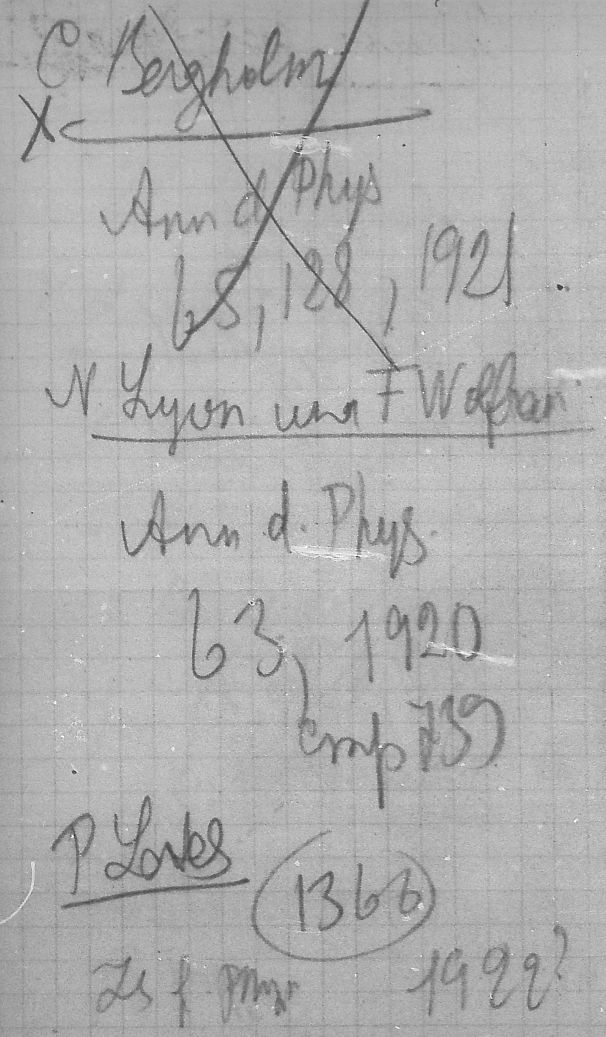 C. Bergholm
X
Ann d. Phys
65, 128, 1921.
N. Lyon und F Wolfram
Ann d. Phys.
63, 1920
стр 739
P
1366
Zs f. Phys 1922?